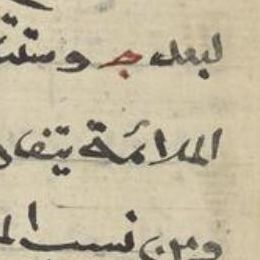 لبعد ج وستة
الملائمة يتفا
ومن نسب ا